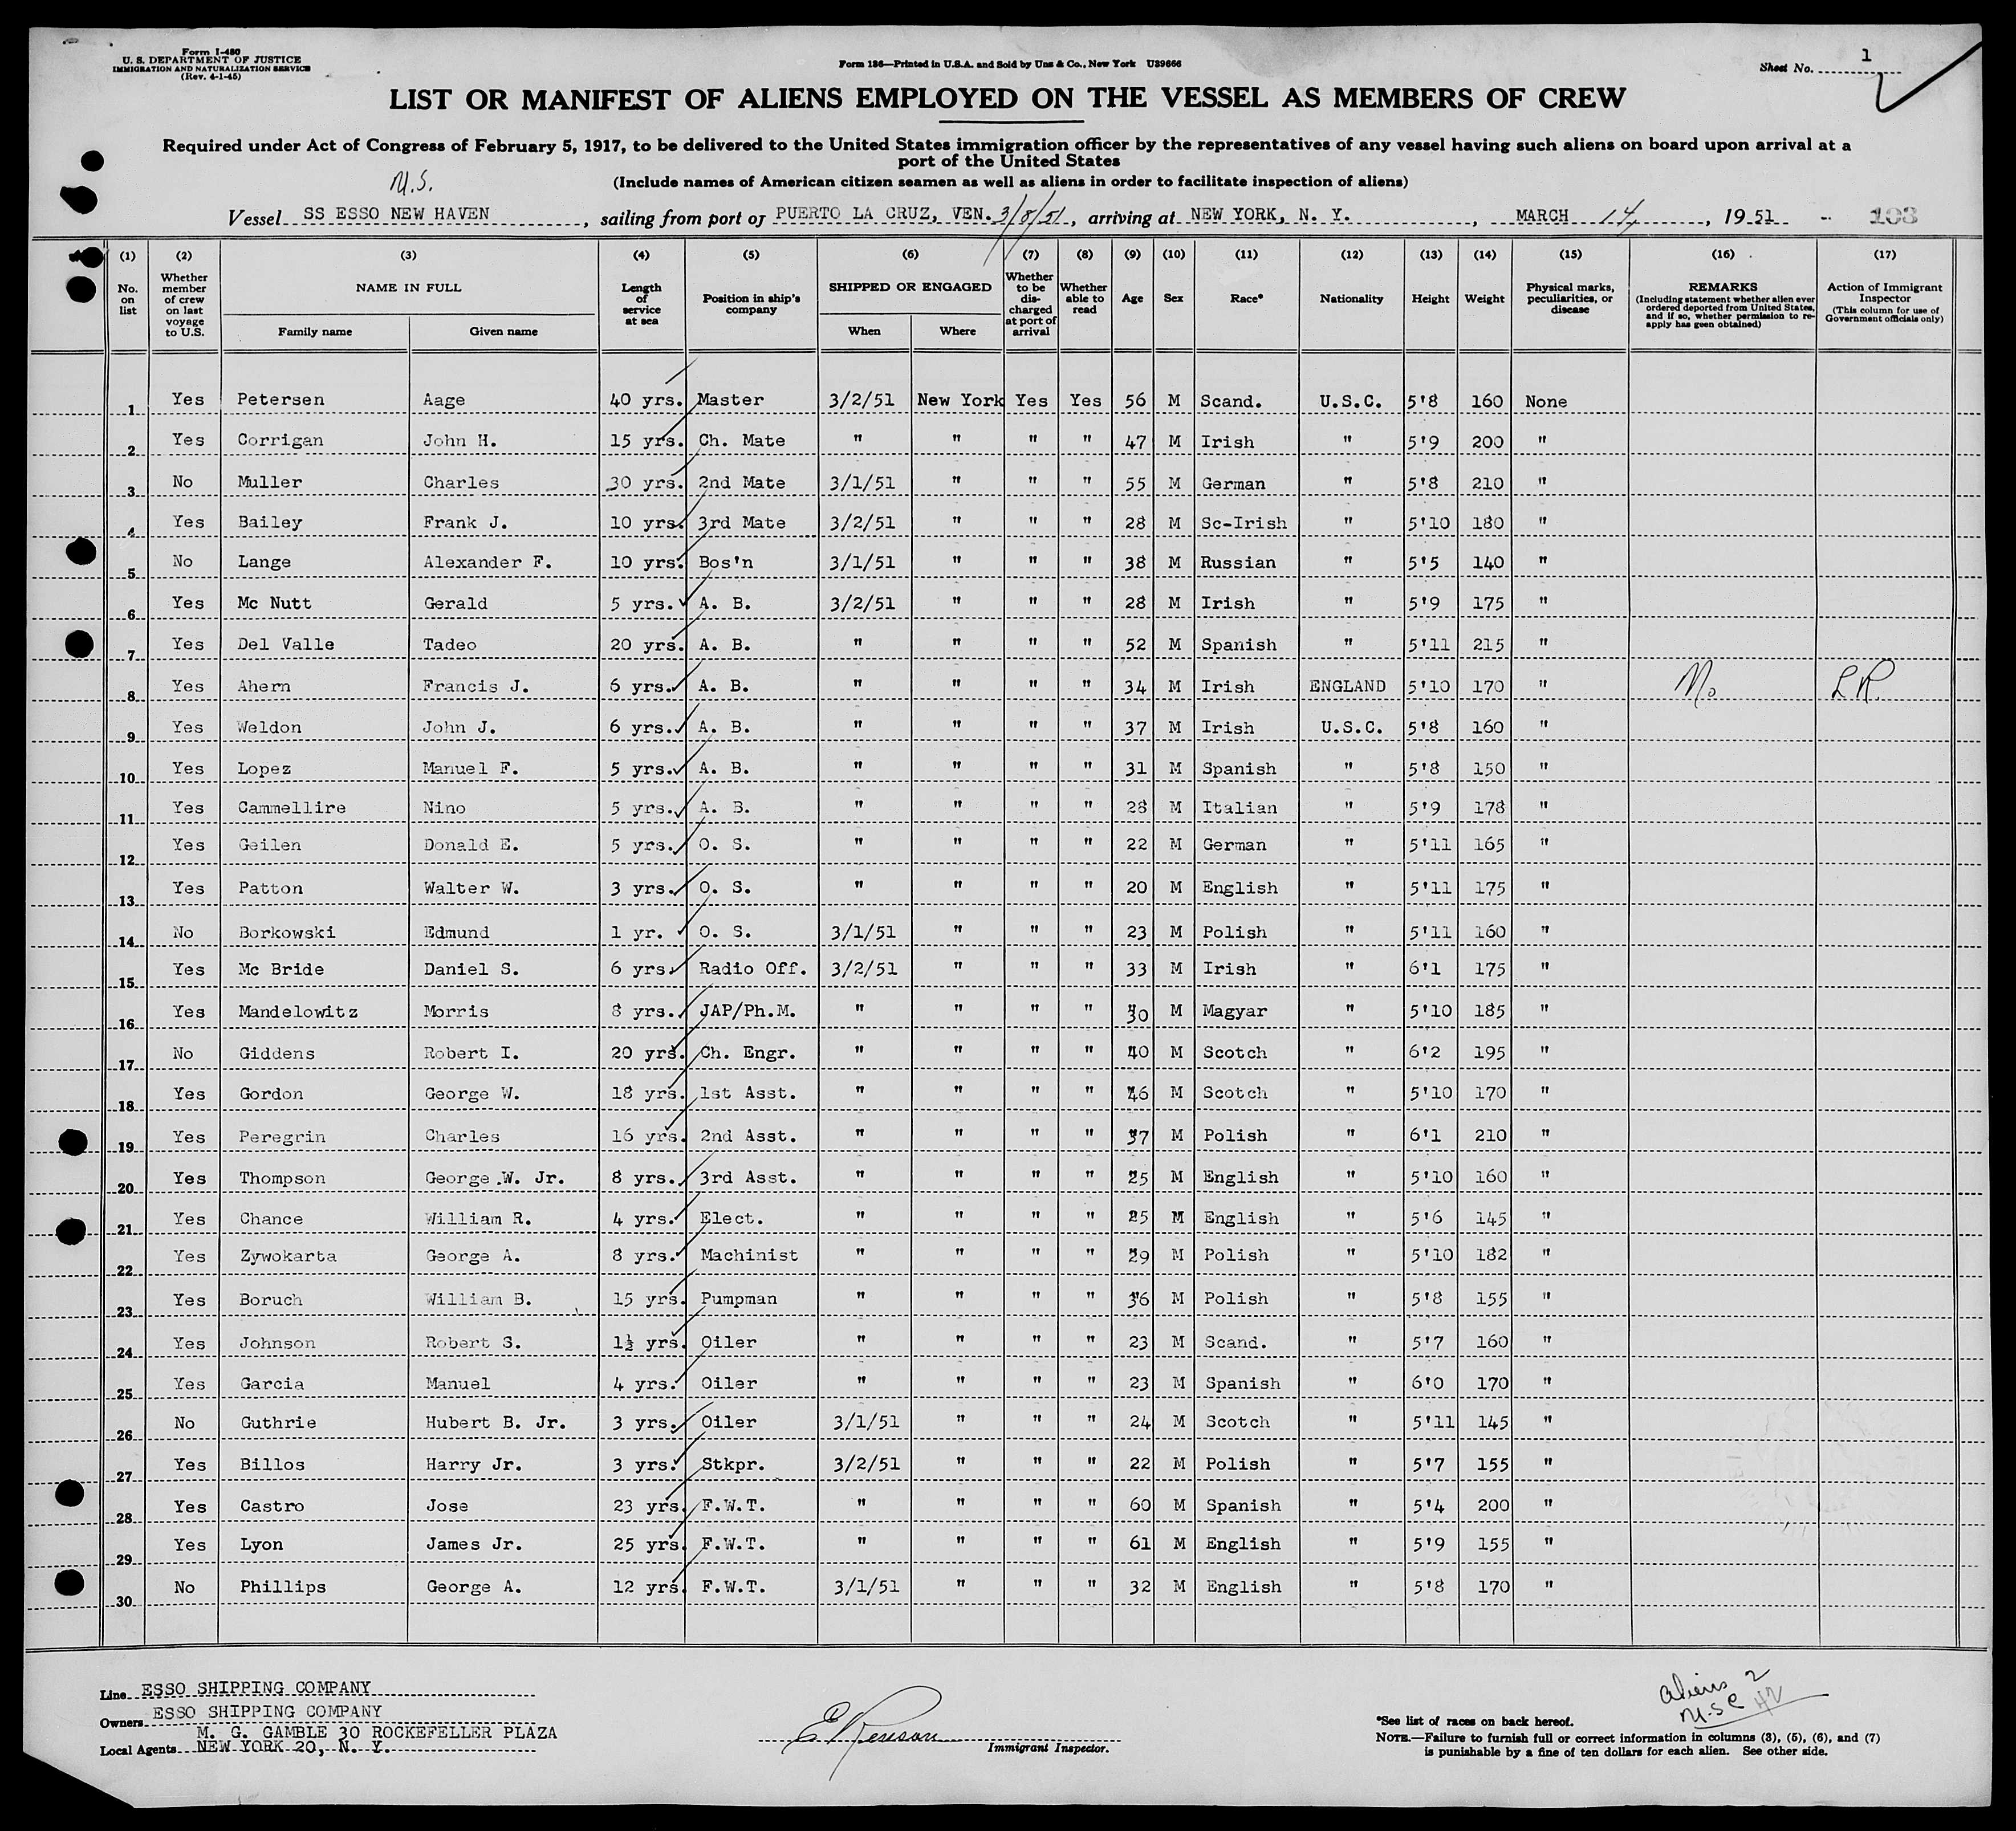 Form I-480
U. S. DEPARTMENT OF JUSTICE
IMMIGRATION AND NATURALIZATION SERVICE
(Rev. 4-1-45)
Form 186—Printed in U.S.A. and Sold by Unz & Co., New York U39666
Sheet No. 1
LIST OR MANIFEST OF ALIENS EMPLOYED ON THE VESSEL AS MEMBERS OF CREW
Required under Act of Congress of February 5, 1917, to be delivered to the United States immigration officer by the representatives of any vessel having such aliens on board upon arrival at a
port of the United States
(Include names of American citizen seamen as well as aliens in order to facilitate inspection of aliens)
U.S.
Vessel SS ESSO NEW HAVEN, sailing from port of PUERTO LA CRUZ, VEN. 3/8/51, arriving at NEW YORK, N. Y., MARCH 14, 1951 - 103
(1) (2) (3) (4) (5) (6) (7) (8) (9) (10) (11) (12) (13) (14) (15) (16) (17)
No. on list
Whether member of crew on last voyage to U.S.
NAME IN FULL
Family name
Given name
Length of service at sea
Position in ship's company
SHIPPED OR ENGAGED
When
Where
Whether to be discharged at port of arrival
Whether able to read
Age
Sex
Race*
Nationality
Height
Weight
Physical marks, peculiarities, or disease
REMARKS
(Including statement whether alien ever ordered deported from United States, and if so, whether permission to re-apply has geen obtained)
Action of Immigrant Inspector
(This column for use of Government officials only)
1 Yes Petersen Aage 40 yrs. Master 3/2/51 New York Yes Yes 56 M Scand. U.S.C. 5'8 160 None
2 Yes Corrigan John H. 15 yrs. Ch. Mate " " " " 47 M Irish " 5'9 200 "
3 No Muller Charles 30 yrs. 2nd Mate 3/1/51 " " " 55 M German " 5'8 210 "
4 Yes Bailey Frank J. 10 yrs. 3rd Mate 3/2/51 " " " 28 M Sc-Irish " 5'10 180 "
5 No Lange Alexander F. 10 yrs. Bos'n 3/1/51 " " " 38 M Russian " 5'5 140 "
6 Yes Mc Nutt Gerald 5 yrs. A. B. 3/2/51 " " " 28 M Irish " 5'9 175 "
7 Yes Del Valle Tadeo 20 yrs. A. B. " " " " 52 M Spanish " 5'11 215 "
8 Yes Ahern Francis J. 6 yrs. A. B. " " " " 34 M Irish ENGLAND 5'10 170 " No LR
9 Yes Weldon John J. 6 yrs. A. B. " " " " 37 M Irish U.S.C. 5'8 160 "
10 Yes Lopez Manuel F. 5 yrs. A. B. " " " " 31 M Spanish " 5'8 150 "
11 Yes Cammellire Nino 5 yrs. A. B. " " " " 28 M Italian " 5'9 178 "
12 Yes Geilen Donald E. 5 yrs. O. S. " " " " 22 M German " 5'11 165 "
13 Yes Patton Walter W. 3 yrs. O. S. " " " " 20 M English " 5'11 175 "
14 No Borkowski Edmund 1 yr. O. S. 3/1/51 " " " 23 M Polish " 5'11 160 "
15 Yes Mc Bride Daniel S. 6 yrs. Radio Off. 3/2/51 " " " 33 M Irish " 6'1 175 "
16 Yes Mandelowitz Morris 8 yrs. JAP/Ph.M. " " " " 30 M Magyar " 5'10 185 "
17 No Giddens Robert I. 20 yrs. Ch. Engr. " " " " 40 M Scotch " 6'2 195 "
18 Yes Gordon George W. 18 yrs. 1st Asst. " " " " 46 M Scotch " 5'10 170 "
19 Yes Peregrin Charles 16 yrs. 2nd Asst. " " " " 37 M Polish " 6'1 210 "
20 Yes Thompson George W. Jr. 8 yrs. 3rd Asst. " " " " 25 M English " 5'10 160 "
21 Yes Chance William R. 4 yrs. Elect. " " " " 25 M English " 5'6 145 "
22 Yes Zywokarta George A. 8 yrs. Machinist " " " " 29 M Polish " 5'10 182 "
23 Yes Boruch William B. 15 yrs. Pumpman " " " " 36 M Polish " 5'8 155 "
24 Yes Johnson Robert S. 1½ yrs. Oiler " " " " 23 M Scand. " 5'7 160 "
25 Yes Garcia Manuel 4 yrs. Oiler " " " " 23 M Spanish " 6'0 170 "
26 No Guthrie Hubert B. Jr. 3 yrs. Oiler 3/1/51 " " " 24 M Scotch " 5'11 145 "
27 Yes Billos Harry Jr. 3 yrs. Stkpr. 3/2/51 " " " 22 M Polish " 5'7 155 "
28 Yes Castro Jose 23 yrs. F.W.T. " " " " 60 M Spanish " 5'4 200 "
29 Yes Lyon James Jr. 25 yrs. F.W.T. " " " " 61 M English " 5'9 155 "
30 No Phillips George A. 12 yrs. F.W.T. 3/1/51 " " " 32 M English " 5'8 170 "
Line ESSO SHIPPING COMPANY
Owners ESSO SHIPPING COMPANY
M. G. GAMBLE 30 ROCKEFELLER PLAZA
Local Agents NEW YORK 20, N. Y.
Immigrant Inspector.
Aliens 2
U.S.C 42
*See list of races on back hereof.
NOTE.—Failure to furnish full or correct information in columns (3), (5), (6), and (7)
is punishable by a fine of ten dollars for each alien. See other side.